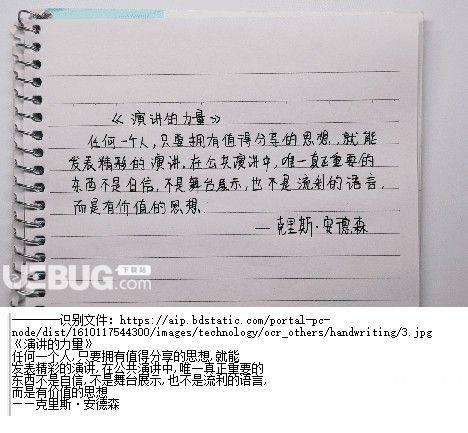 《演讲的力量》
任何一个人,只要拥有值得分享的思想,就能
发表精彩的演讲,在公共演讲中,唯一真正重要的
东西不是自信,不是舞台展示,也不是流利的语言,
而是有价值的思想.
——克里斯·安德森
UEBUG
下载站
.com
————识别文件: https://aip.bdstatic.com/portal-pc-
node/dist/1610117544300/images/technology/ocr_others/handwriting/3.jpg
《演讲的力量》
任何一个人,只要拥有值得分享的思想,就能
发表精彩的演讲,在公共演讲中,唯一真正重要的
东西不是自信,不是舞台展示,也不是流利的语言,
而是有价值的思想
——克里斯·安德森